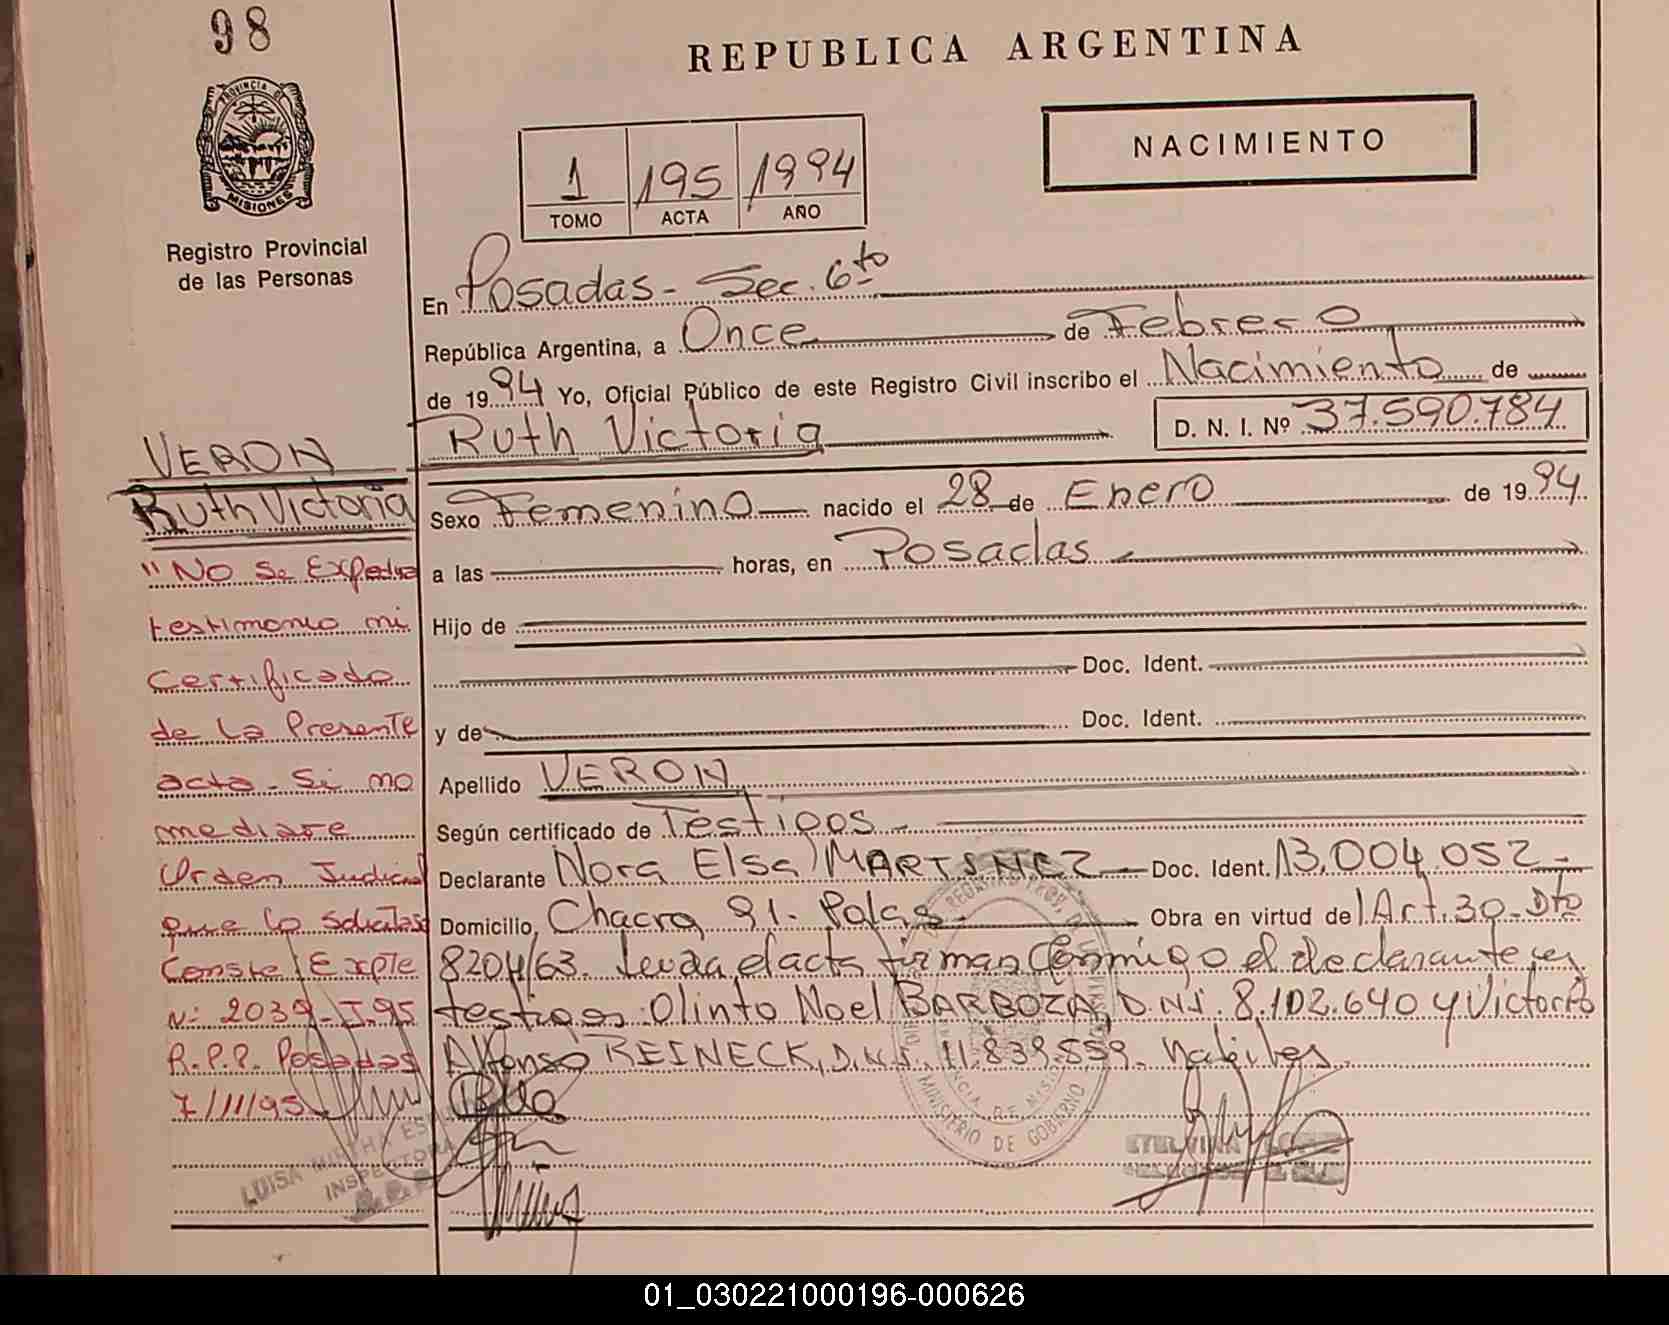 98
REPUBLICA ARGENTINA
PROVINCIA DE
MISIONES
NACIMIENTO
1 195 1994
TOMO ACTA AÑO
Registro Provincial
de las Personas
En Posadas - Sec. 6to
República Argentina, a Once de Febrero
de 1994 Yo, Oficial Público de este Registro Civil inscribo el Nacimiento de
Ruth Victoria D. N. I. Nº 37.590.784
Sexo Femenino nacido el 28 de Enero de 1994
a las horas, en Posadas
Hijo de
Doc. Ident.
y de Doc. Ident.
Apellido VERON
Según certificado de Testigos
Declarante Nora Elsa MARTINEZ Doc. Ident. 13.004.052
Domicilio, Chacra 91. Pdas. Obra en virtud del Art. 30 - Dto
8204/63. Leida el acta firman conmigo el declarante
testigos Olinto Noel BARBOZA, D.N.I. 8.102.640 y Victorio
Alfonso REINECK, D.N.I. 11.839.559.
VERON
Ruth Victoria
"No Se Expedira
testimonio ni
Certificado
de La Presente
acta - Si no
mediare
Orden Judicial
que lo Solicitase
Conste Expte
Nº 2039-I.95
R.P.P. Posadas
7/11/95
LUISA MIRTHA
INSPECTORA
MINISTERIO DE GOBIERNO
01_030221000196-000626